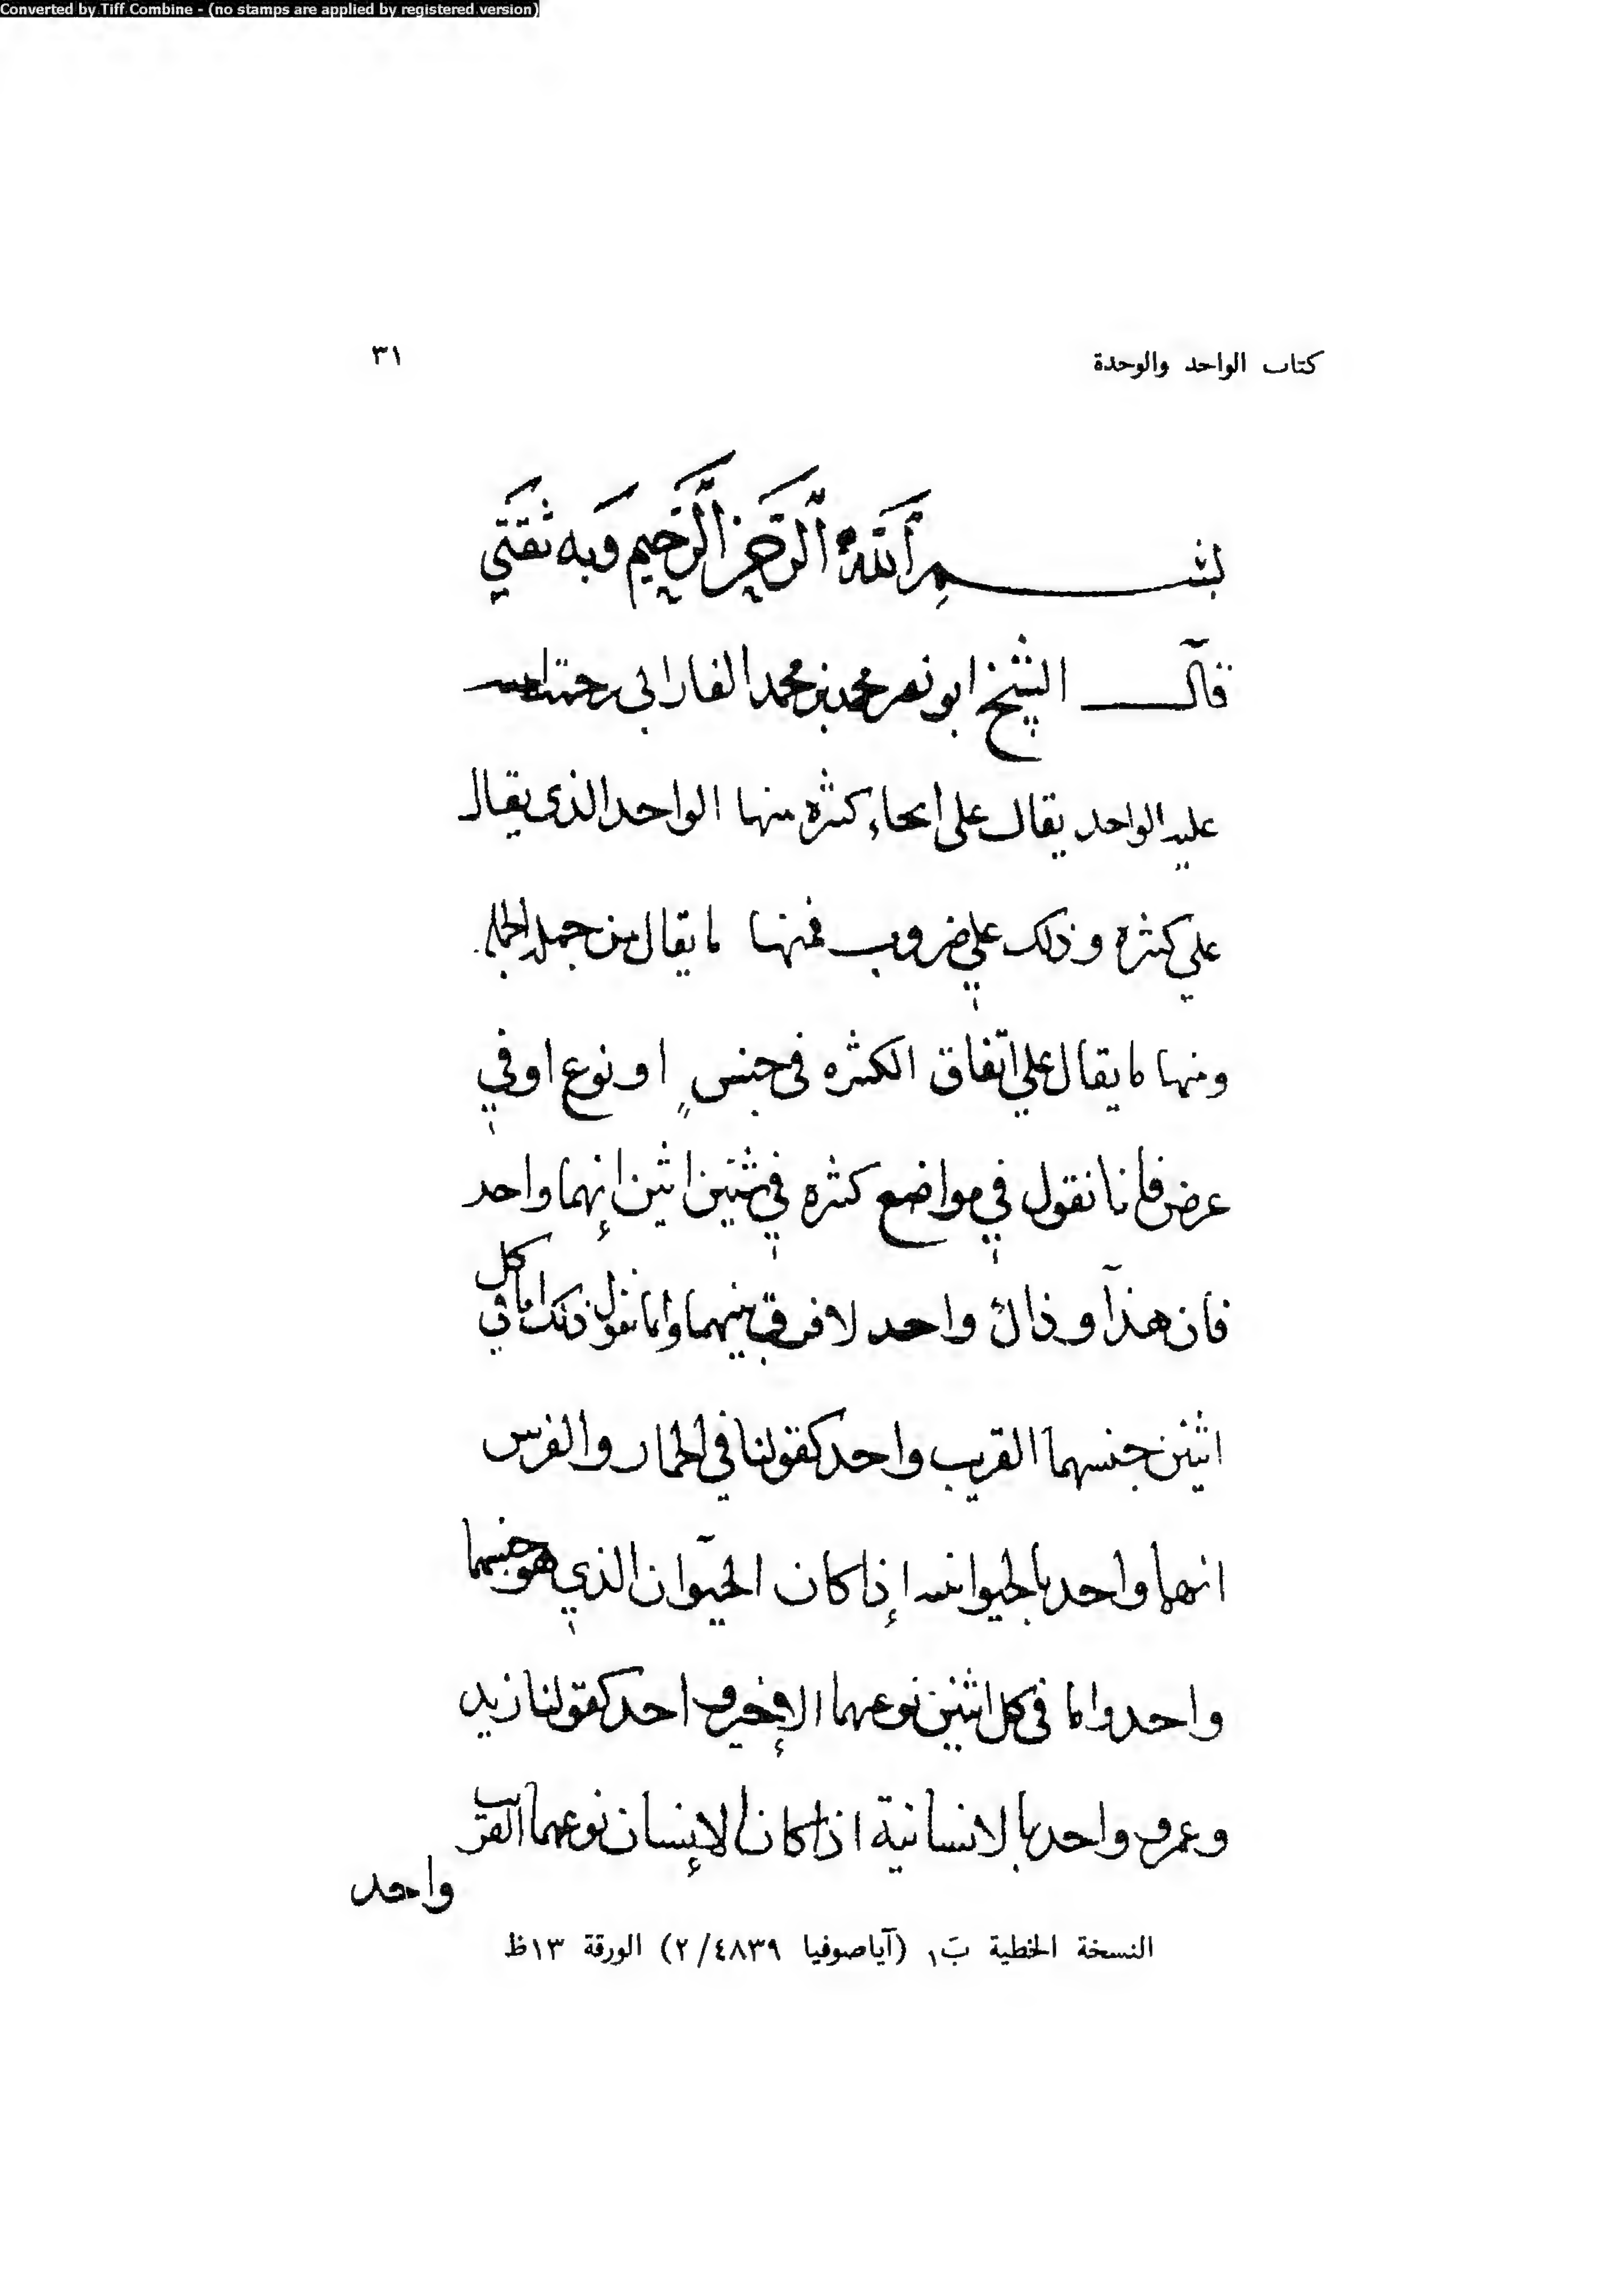 Converted by Tiff Combine - (no stamps are applied by registered version)
كتاب الواحد والوحدة ٣١
بسم الله الرحمن الرحيم وبه ثقتي
قال الشيخ ابو نصر محمد بن محمد الفارابى رحمة الله
عليه الواحد يقال على أنحاء كثيره منها الواحد الذى يقال
على كثيره وذلك على ضروب فمنها ما يقال من جهة
ومنها ما يقال على اتفاق الكثيره فى جنس او نوع او في
عرض فإنا نقول في مواضع كثيره في شيئين اثنين إنهما واحد
فان هذا وذاك واحد لا فرق بينهما وانما نقول ذلك اما في كل
اثنين جنسهما القريب واحد كقولنا في الحمار والفرس
انهما واحد بالحيوانيه إذا كان الحيوان الذي هو جنسهما
واحد واما فى كل اثنين نوعهما الإخير واحد كقولنا زيد
وعمرو واحد بالانسانية اذا كان الإنسان نوعهما القريب
واحد
النسخة الخطية بَ١ (آياصوفيا ٢/٤٨٣٩) الورقة ١٣ظ